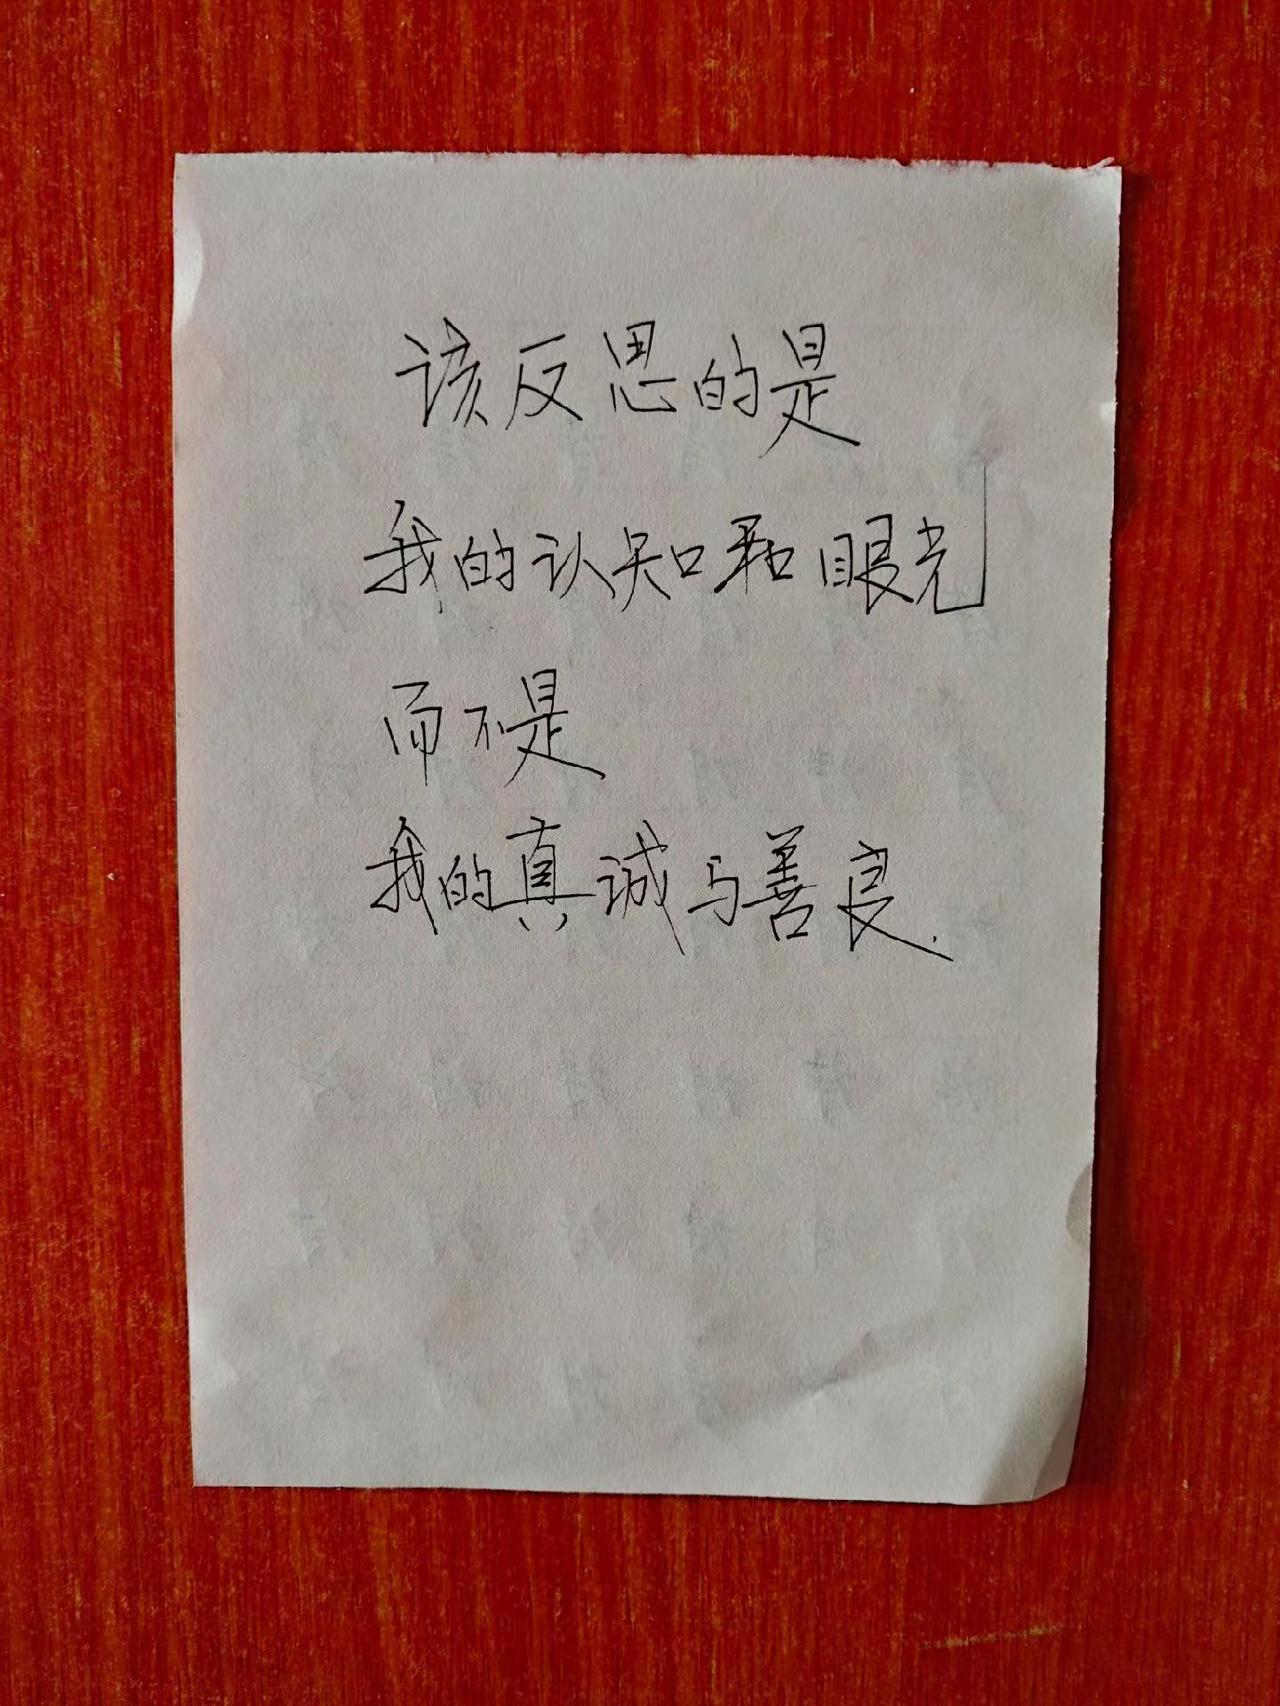 该反思的是
我的认知和眼光
而不是
我的真诚与善良.